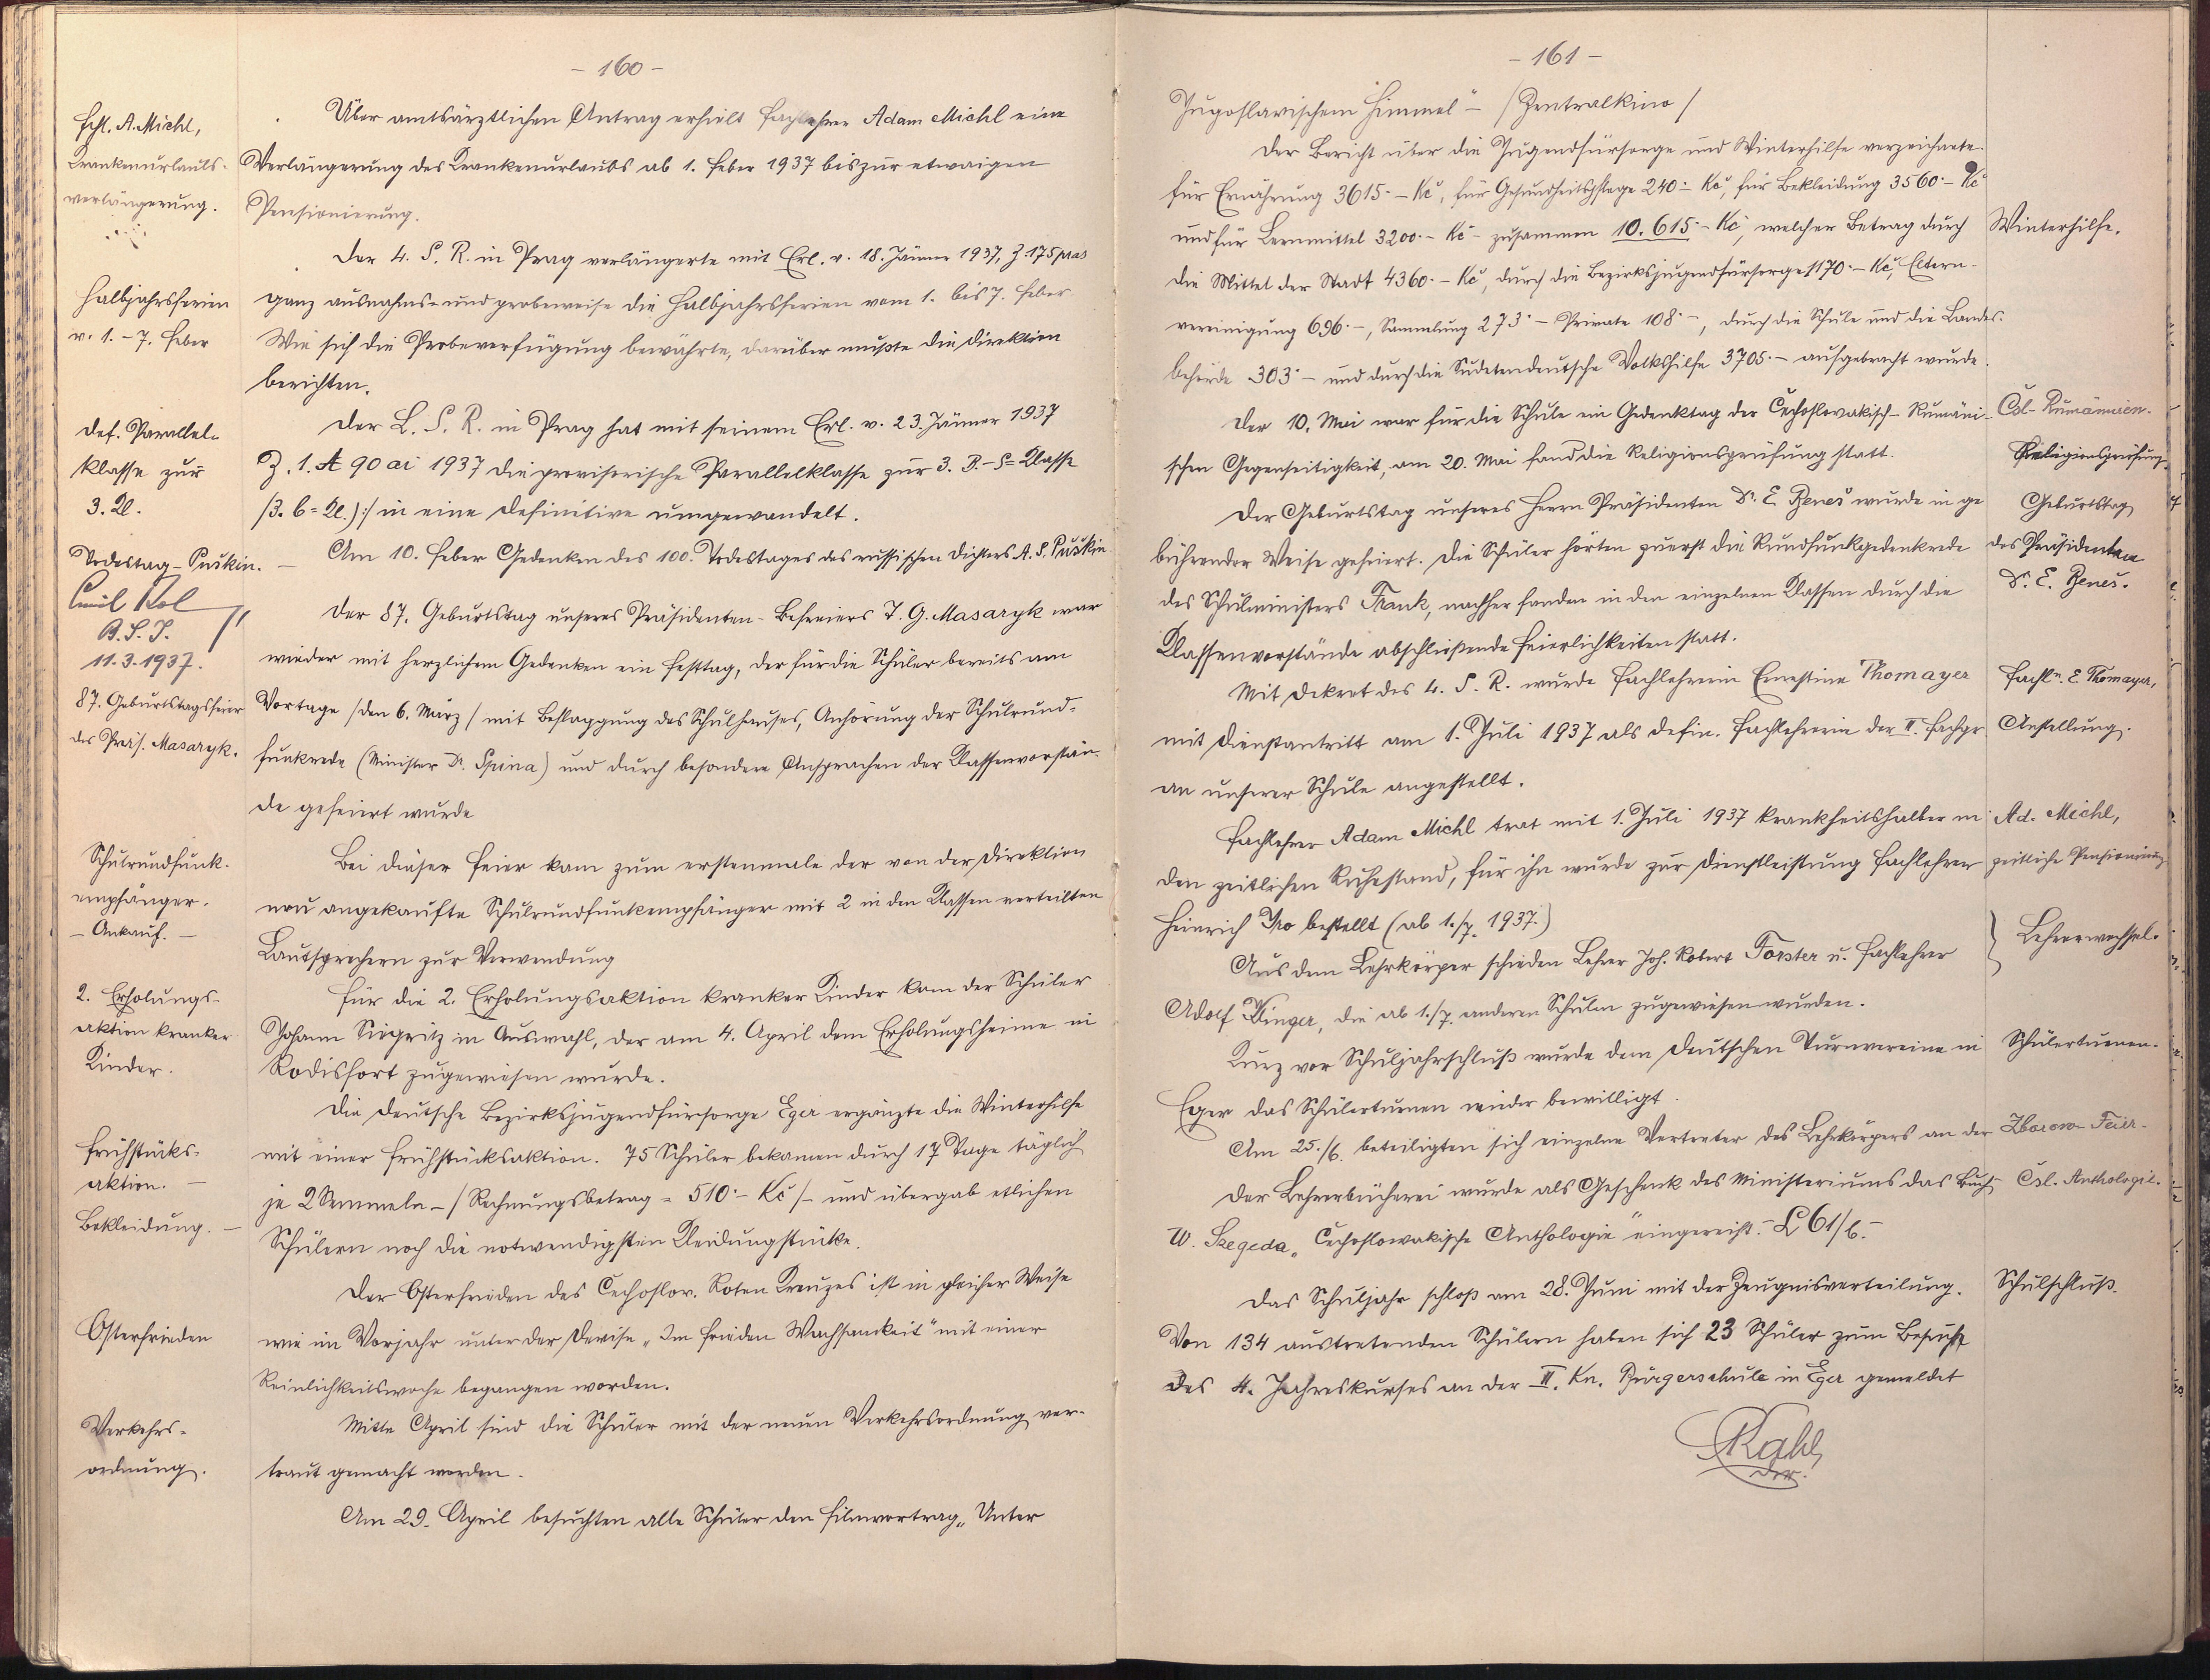 - 160 -
Fchl. A. Michl,
Krankenurlaubs-
verlängerung.
Über amtsärztlichen Antrag erhielt Fachlehrer Adam Michl eine
Verlängerung des Krankenurlaubs ab 1. Feber 1937 bis zur etwaigen
Pensionierung.
Der L. S. R. in Prag verlängerte mit Erl. v. 18. Jänner 1937, Z. 175 praes
Halbjahrsferien
v. 1. - 7. Feber
ganz ausnahms- und probeweise die Halbjahrsferien vom 1. bis 7. Feber
Wie sich die Probeverfügung bewährte, darüber mußte die Direktion
berichten.
Def. Parallel-
klasse zur
3. Kl.
Der L. S. R. in Prag hat mit seinem Erl. v. 23. Jänner 1937
Z. 1. A 90 ai 1937 die provisorische Parallelklasse zur 3. B.-S= Klasse
/3. b= Kl.):/ in eine definitive umgewandelt.
Todestag - Puškin.
Am 10. Feber Gedenken des 100. Todestages des russischen Dichters A. S. Puškin.
Emil Kol
B. S. I.
11. 3. 1937.
Der 87. Geburtstag unseres Präsidenten-Befreiers T. G. Masaryk war
wieder mit herzlichem Gedenken ein Festtag, der für die Schüler bereits am
87. Geburtstagsfeier
des Präs. Masaryk.
Vortage /den 6. März/ mit Beflaggung des Schulhauses, Anhörung der Schulrund-
funkrede (Minister Dr. Spina) und durch besondere Ansprachen der Klassenvorstän-
de gefeiert wurde
Schulrundfunk-
empfänger.
- Ankauf. -
Bei dieser Feier kam zum erstenmale der von der Direktion
neu angekaufte Schulrundfunkempfänger mit 2 in den Klassen verteilten
Lautsprechern zur Verwendung
2. Erholungs-
aktion kranker
Kinder.
Für die 2. Erholungsaktion kranker Kinder kam der Schüler
Johann Siegritz in Auswahl, der am 4. April dem Erholungsheime in
Rodisfort zugewiesen wurde.
Die Deutsche Bezirksjugendfürsorge Eger ergänzte die Winterhilfe
Frühstücks-
aktion. -
Bekleidung. -
mit einer Frühstücksaktion. 75 Schüler bekamen durch 17 Tage täglich
je 2 Semmeln - / Rechnungsbetrag = 510·- Kč /- und übergab etlichen
Schülern noch die notwendigsten Kleidungstücke.
Der Osterfrieden des Čechoslov. Roten Kreuzes ist in gleicher Weise
Osterfrieden
wie im Vorjahr unter der Devise „Im Frieden Wachsamkeit" mit einer
Reinlichkeitswoche begangen worden.
Verkehrs-
ordnung.
Mitte April sind die Schüler mit der neuen Verkehrsordnung ver-
traut gemacht worden.
Am 29. April besuchten alle Schüler den Filmvortrag „Unter
- 161 -
Jugoslavischem Himmel" - / Zentralkino /
Der Bericht über die Jugendfürsorge und Winterhilfe verzeichnete
für Ernährung 3615·- Kč, für Gesundheitspflege 240·- Kč, für Bekleidung 3560·- Kč
und für Lernmittel 3200·- Kč - zusammen 10.615·- Kč, welcher Betrag durch
Winterhilfe.
die Mittel der Stadt 4360·- Kč, durch die Bezirksjugendfürsorge 1170·- Kč, Eltern-
vereinigung 696·-, Sammlung 273·- Private 108·-, durch die Schule und die Landes-
behörde 303·- und durch die Sudetendeutsche Volkshilfe 3705·- aufgebracht wurde.
Der 10. Mai war für die Schule ein Gedenktag der Čechoslovakisch-Rumäni-
Čsl-Rumänien.
schen Gegenseitigkeit, am 20. Mai fand die Religionsprüfung statt.
Religionsprüfung.
Der Geburtstag unseres Herrn Präsidenten Dr. E. Beneš wurde in ge
bührender Weise gefeiert. Die Schüler hörten zuerst die Rundfunkgedenkrede
des Schulministers Frank, nachher fanden in den einzelnen Klassen durch die
Klassenvorstände abschließende Feierlichkeiten statt.
Geburtstag
des Präsidenten
Dr. E. Beneš.
Mit Dekret des L. S. R. wurde Fachlehrerin Ernestine Thomayer
mit Dienstantritt am 1. Juli 1937 als defin. Fachlehrerin der II. Fachgr.
an unserer Schule angestellt.
Fachln. E. Thomayer,
Anstellung.
Fachlehrer Adam Michl trat mit 1. Juli 1937 krankheitshalber in
den zeitlichen Ruhestand, für ihn wurde zur Dienstleistung Fachlehrer
Heinrich Iro bestellt (ab 1./7. 1937.)
Ad. Michl,
zeitliche Pensionierung.
Aus dem Lehrkörper schieden Lehrer Joh. Robert Forster u. Fachlehrer
Adolf Klinger, die ab 1./7. anderen Schulen zugewiesen wurden.
Lehrerwechsel.
Kurz vor Schuljahrschluß wurde dem Deutschen Turnvereine in
Eger das Schülerturnen wieder bewilligt.
Schülerturnen.
Am 25./6. beteiligten sich einzelne Vertreter des Lehrkörpers an der
Zborow-Feier.
Der Lehrerbücherei wurde als Geschenk des Ministeriums das Buch
W. Szegeda „Čechoslowakische Anthologie" eingereicht. - L 61/b. -
Čsl. Anthologie.
Das Schuljahr schloß am 28. Juni mit der Zeugnisverteilung.
Schulschluß.
Von 134 austretenden Schülern haben sich 23 Schüler zum Besuche
des 4. Jahreskurses an der II. Kn. Bürgerschule in Eger gemeldet
Rahl
Dir.